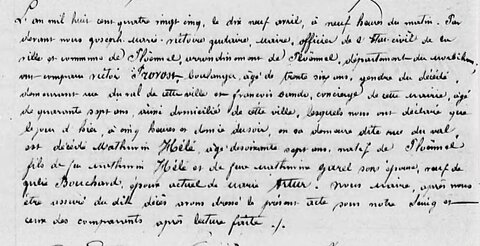 L'an mil huit cent quatre vingt cinq, le dix neuf avril, à neuf heures du matin. Par
devant nous Joseph Marie Victoire Maire, officier de l'Etat-civil de la
ville et commune de Ploërmel, arrondissement de Ploërmel, département du Morbihan,
ont comparu Victor Provost Boulanger, âgé de trente six ans, gendre du décédé,
demeurant rue du val de cette ville et François concierge de cette mairie, âgé
de quarante sept ans, aussi domicilié de cette ville, lesquels nous ont déclaré que
le jour d'hier, à cinq heures et demie du soir, en sa demeure dite rue du val
est décédé Mathurin Hélé, âgé de soixante sept ans, natif de Ploërmel
fils de feu Mathurin Hélé et de feue Mathurine Garel son épouse, veuf de
Julie Bouchard, époux actuel de Marie Artur. Nous Maire, après nous
être assuré du dit décès avons dressé le présent acte sous notre Seing et
ceux des comparants après lecture faite ./.